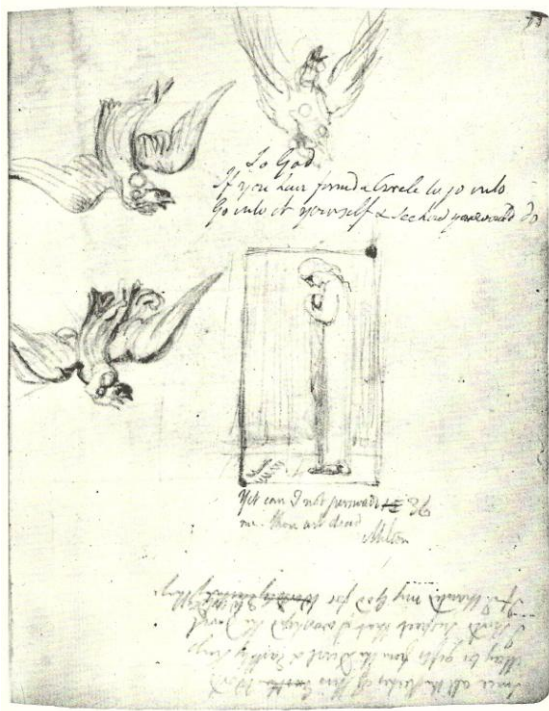 73
To God
If you have formd a Circle to go into
Go into it yourself & see how you would do
Yet can I not perswade
me thou art dead
Milton
Since all the Riches of this World
May be gifts from the Devil & Earthly Kings
I should suspect that I worshipd the Devil
If I thankd my God for Worldly things